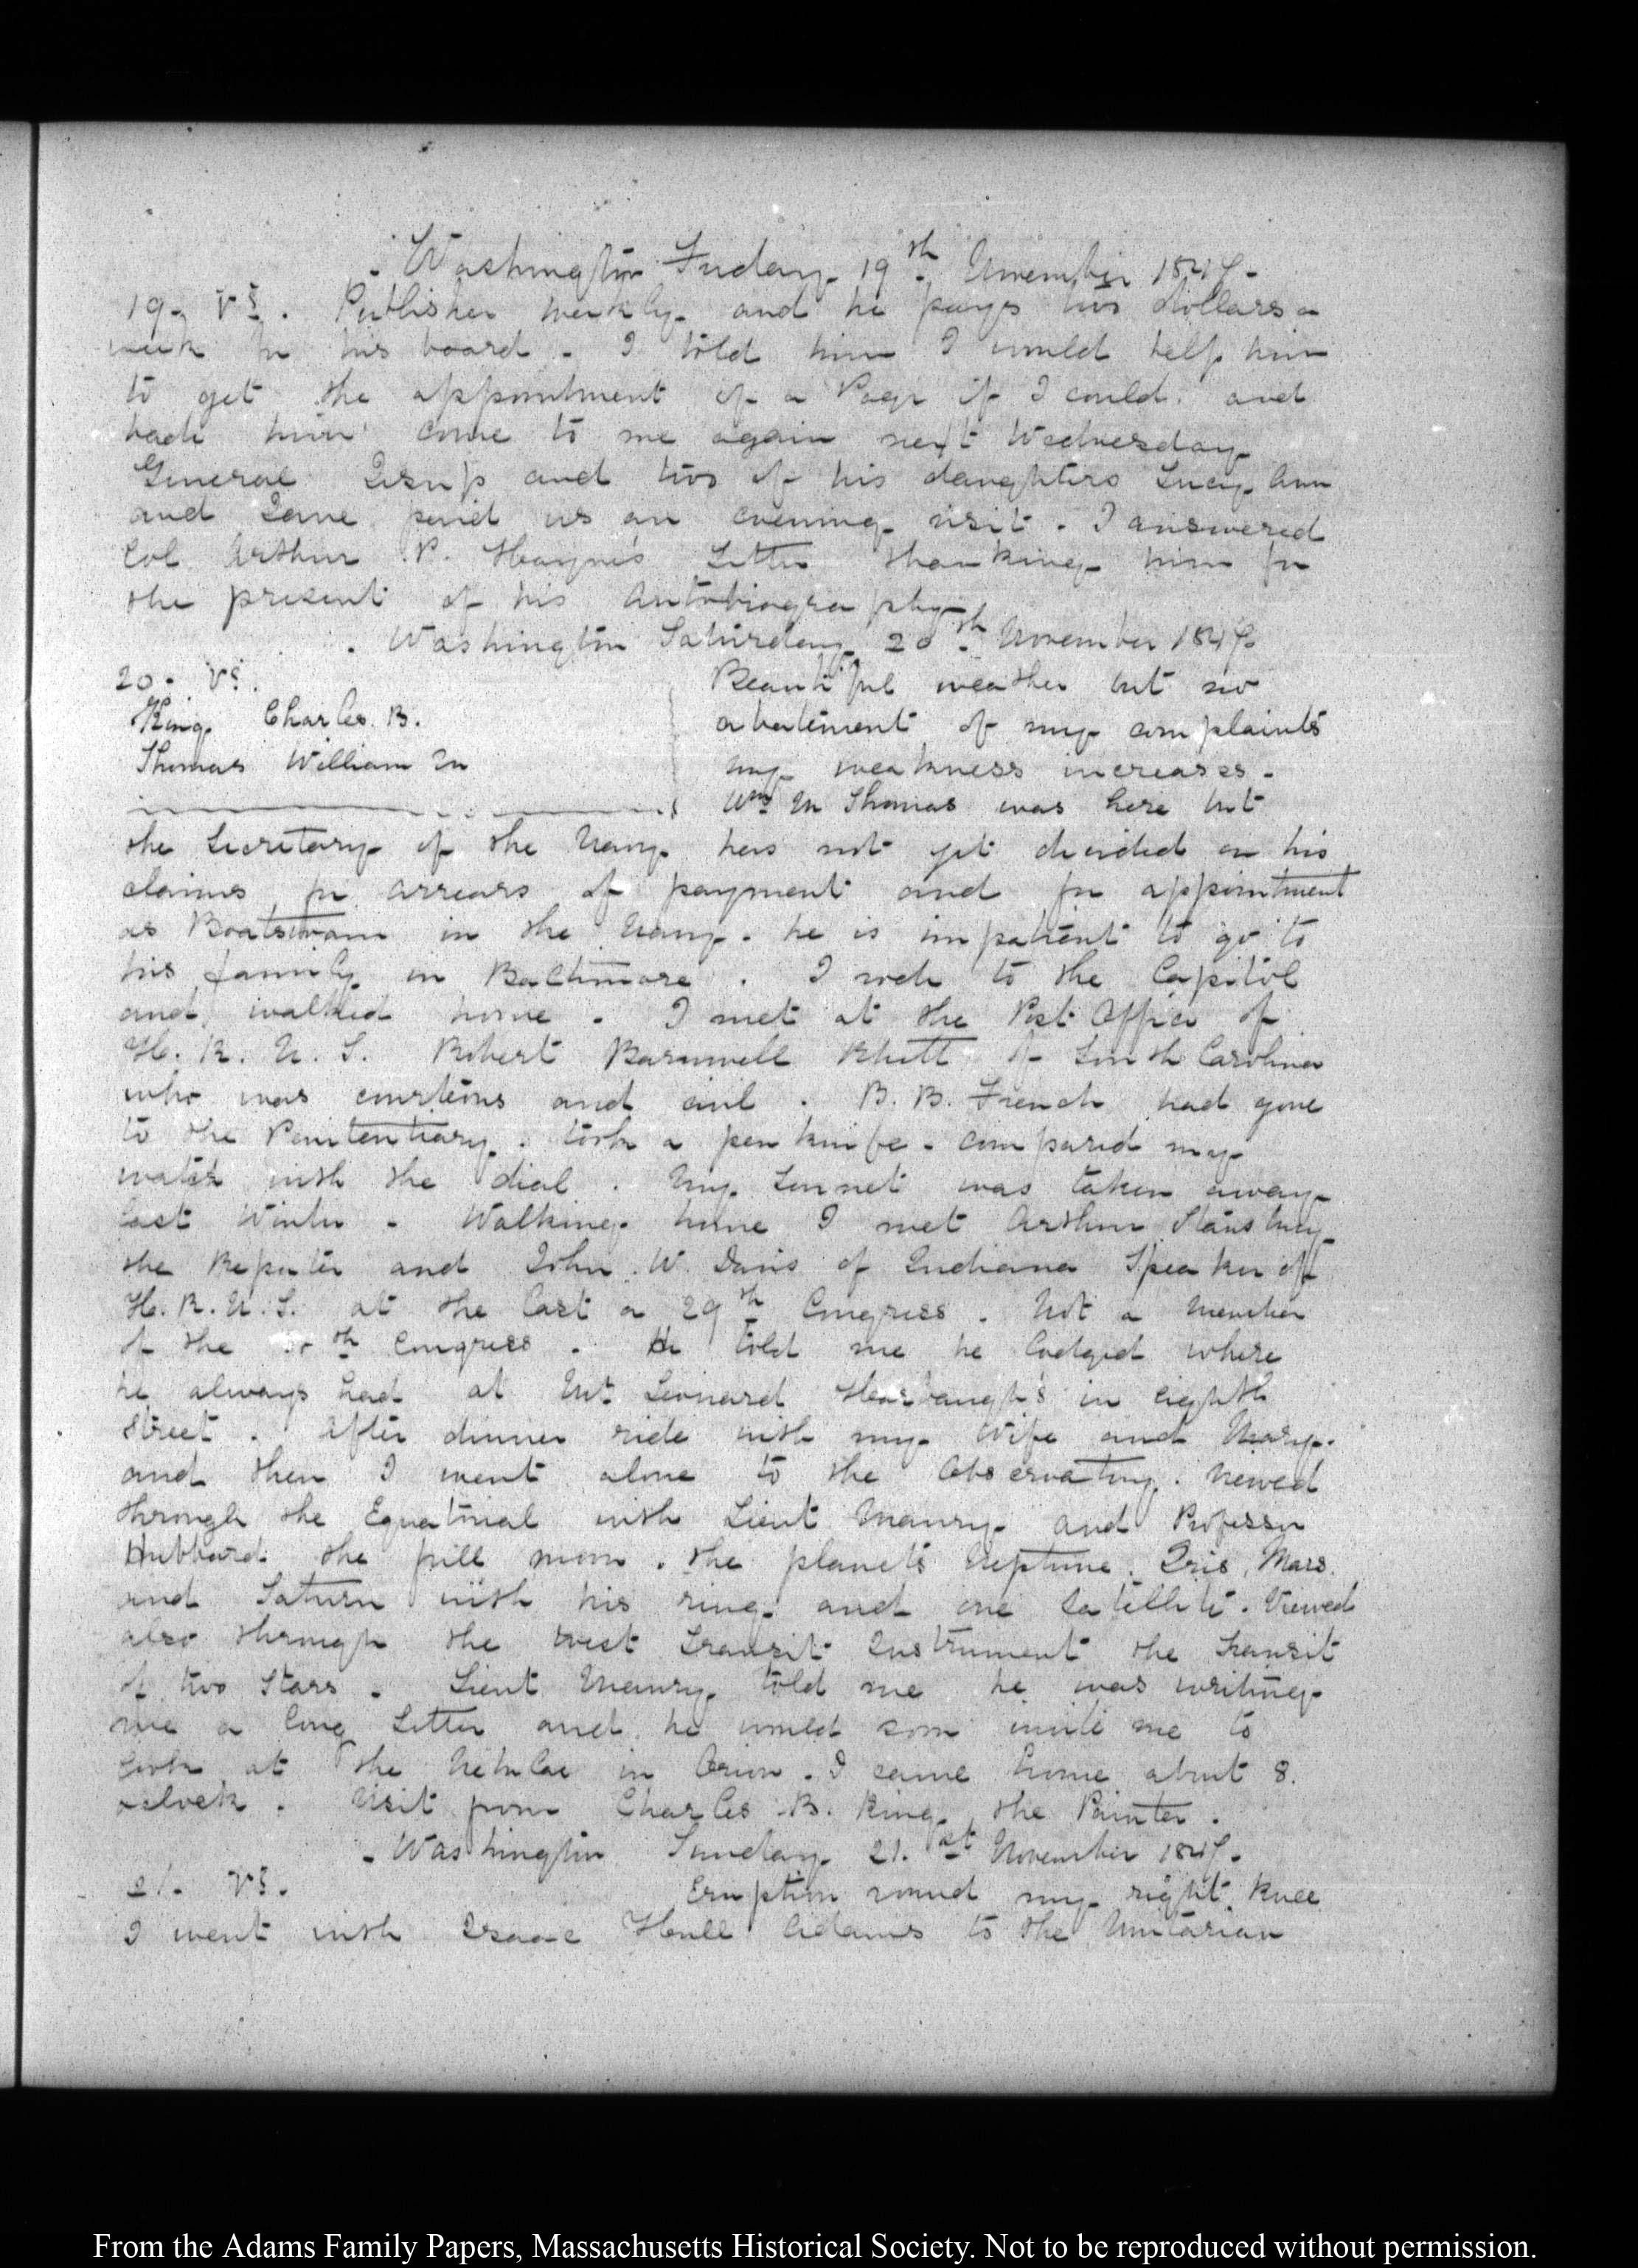 Washington Friday 19th. November 1847.
19. VI. Publisher weekly and he pays two dollars a
week for his board. I told him I would help him
to get the appointment of a Page if I could. and
bade him come to me again next Wednesday
General Jesup and two of his daughters Lucy Ann
and Jane paid us an evening visit. I answered
Col Arthur P. Hayne's Letter thanking him for
the present of his Autobiography
Washington Saturday 20th. November 1847.
20. VII.
King Charles. B.
Thomas William M
Beautiful weather but no
abatement of my complaints
my weakness increases.
Wm M Thomas was here but
the Secretary of the Navy has not yet decided on his
claims for arrears of payment and for appointment
as Boatswain in the Navy. he is impatient to go to
his family in Baltimore. I rode to the Capitol
and walked home. I met at the Post Office of
H. R. U. S. Robert Barnwell Rhett of South Carolina
who was courteous and civil. B. B. French had gone
to the Penitentiary. took a penknife. compared my
watch with the dial. My Sonnet was taken away
last Winter. Walking home I met Arthur Stansbury
the Reporter and John W. Davis of Indiana Speaker of
H. R. U. S. at the last a 29th Congress. Not a member
of the 30th Congress. He told me he lodged where
he always had at Mr. Leonard Harbaugh's in eighth
street. After dinner ride with my Wife and Mary.
and then I went alone to the Observatory. viewed
through the Equatorial with Lieut Maury and Professor
Hubbard the full moon. the planets Neptune. Iris, Mars.
and Saturn with his ring and one satellite. Viewed
also through the West Transit Instrument the transit
of two Stars. Lieut Maury told me he was writing
me a long Letter and he would soon invite me to
look at the Nebulae in Orion. I came home about 8.
o'clock. Visit from Charles B. King the Painter.
Washington Sunday 21.st November 1847.
21. VI.
Eruption round my right knee
I went with Isaac Hull Adams to the Unitarian
From the Adams Family Papers, Massachusetts Historical Society. Not to be reproduced without permission.